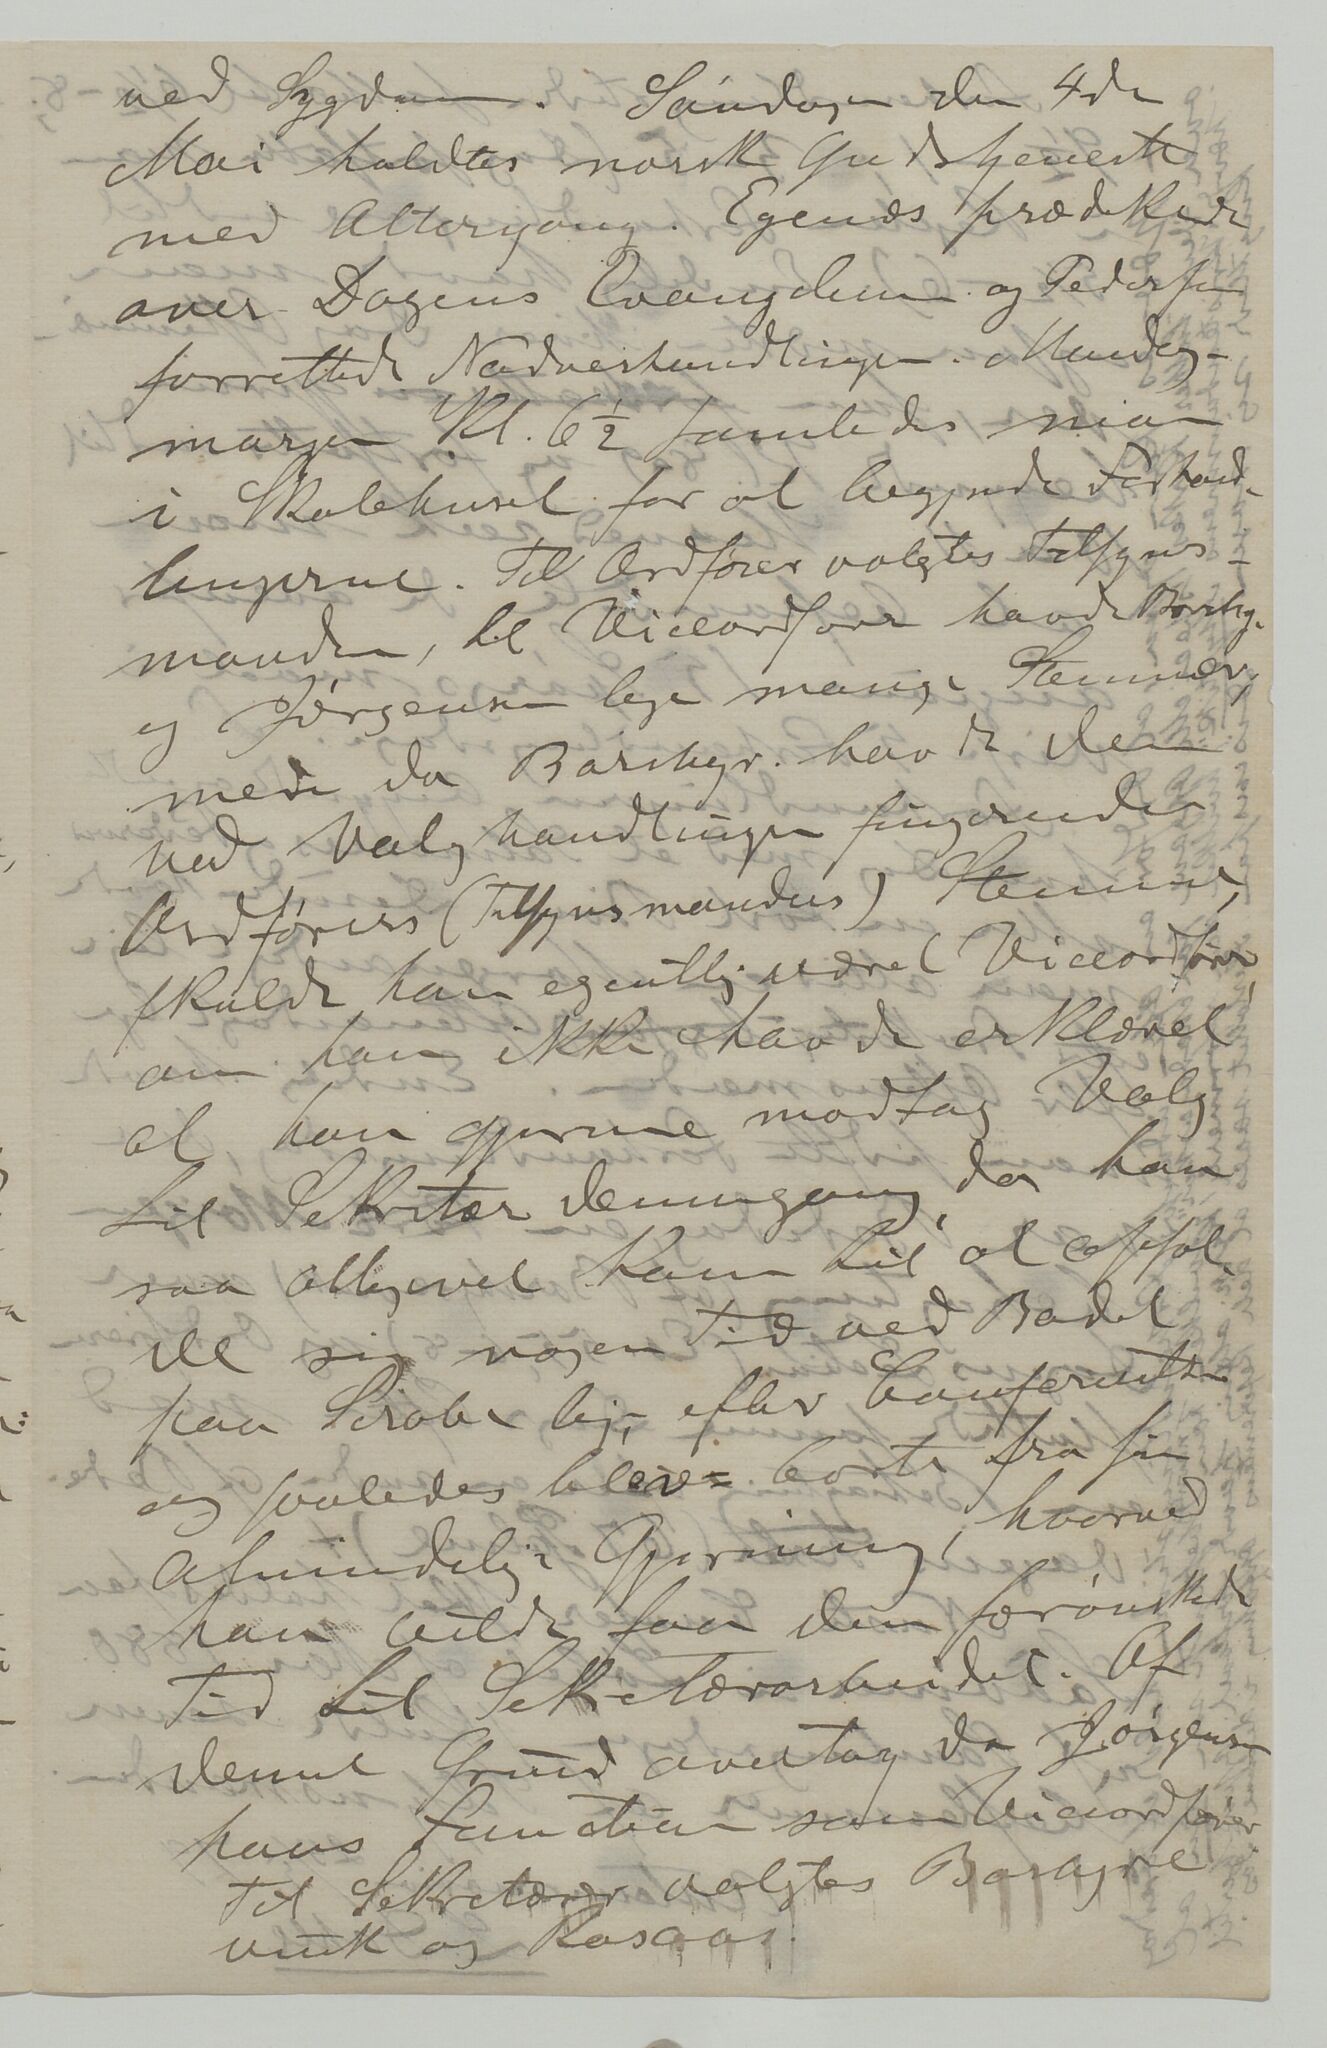 ved Sygdom. Søndagen den 4de
Mai holdtes norsk Gudstjeneste
med Altergang. Egenæs prædikede
over Dagens Evangelium og Pedersen
forrettede Nadverhandlingen. Mandag
morgen Kl. 6½ samledes man
i Skolehuset for at begynde Forhand-
lingerne. Til Ordfører valgtes Tilsyns-
manden, til Viceordfører havde Borchg.
og Jørgensen lige mange Stemmer,
men da Borchgr. havde den
ved Valghandlingen fungerende
Ordførers (Tilsynsmandens) Stemme,
skulde han egentlig været Viceordfører
om han ikke havde erklæret
at han gjerne modtog Valg
til Sekretær dennegang, da han
saa alligevel kom til at ophol-
de sig nogen Tid ved Badet
paa Sirabe lige efter Conferentsen
og saaledes blev borte fra sin
almindelige Gjerning, hvorved
han vilde faa den fornødne
Tid til Sekretærarbeidet. Af
denne Grund overtog da Jørgensen
hans Function som Viceordfører.
Til Sekretærer valgtes Borchgre
vink og Rosaas.